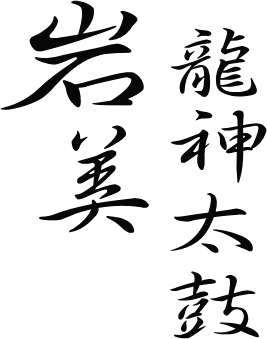 岩美
龍神太鼓